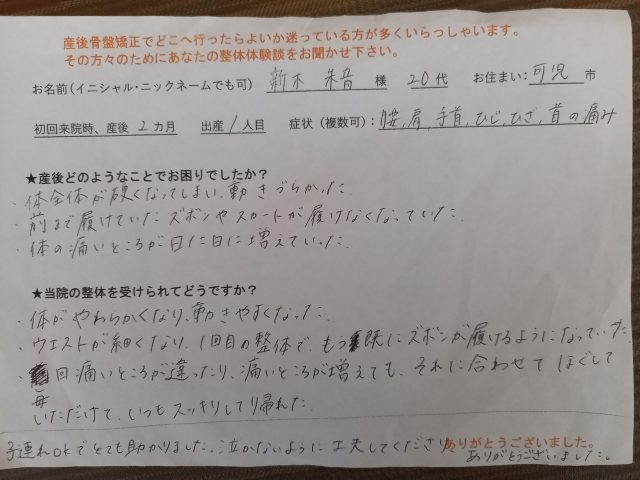 産後骨盤矯正でどこへ行ったらよいか迷っている方が多くいらっしゃいます。
その方々のためにあなたの整体体験談をお聞かせ下さい。
お名前(イニシャル・ニックネームでも可) 新木 朱音 様 20代 お住まい:可児 市
初回来院時、産後 2カ月 出産 1人目 症状(複数可):腰,肩,手首,ひじ,ひざ,首の痛み
★産後どのようなことでお困りでしたか?
・体全体が硬くなってしまい、動きづらかった。
・前まで履けていたズボンやスカートが履けなくなっていた。
・体の痛いところが日に日に増えていった。
★当院の整体を受けられてどうですか?
・体がやわらかくなり、動きやすくなった。
・ウエストが細くなり、1回目の整体で、もう既にズボンが履けるようになっていた
・毎回痛いところが違ったり、痛いところが増えても、それに合わせてほぐして
いただけて、いつもスッキリして帰れた。
子連れOKでとても助かりました。泣かないように工夫してくださり、
ありがとうございました。
ありがとうございました。